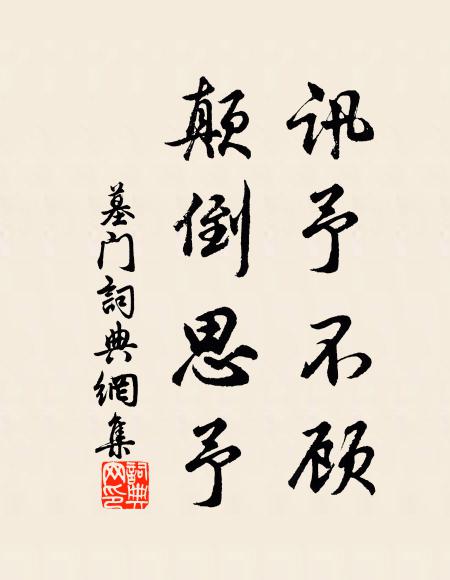 讯予不顾
颠倒思予
墓门词典網集
詞典网印